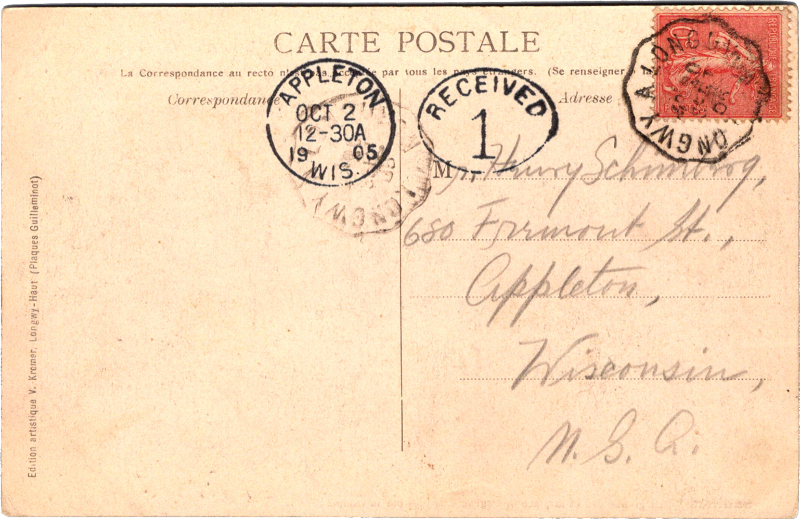 CARTE POSTALE
La Correspondance au recto par tous les pays étrangers. (Se renseigner
Correspondance
Adresse
APPLETON
OCT 2
12-30A
1905
WIS.
RECEIVED
1
LONGWY A LONGUYON
LONGWY
M Henry
680 Fremont St.,
Appleton,
Wisconsin,
U.S.A.
Edition artistique V. Kremer, Longwy-Haut (Plaques Guilleminot)